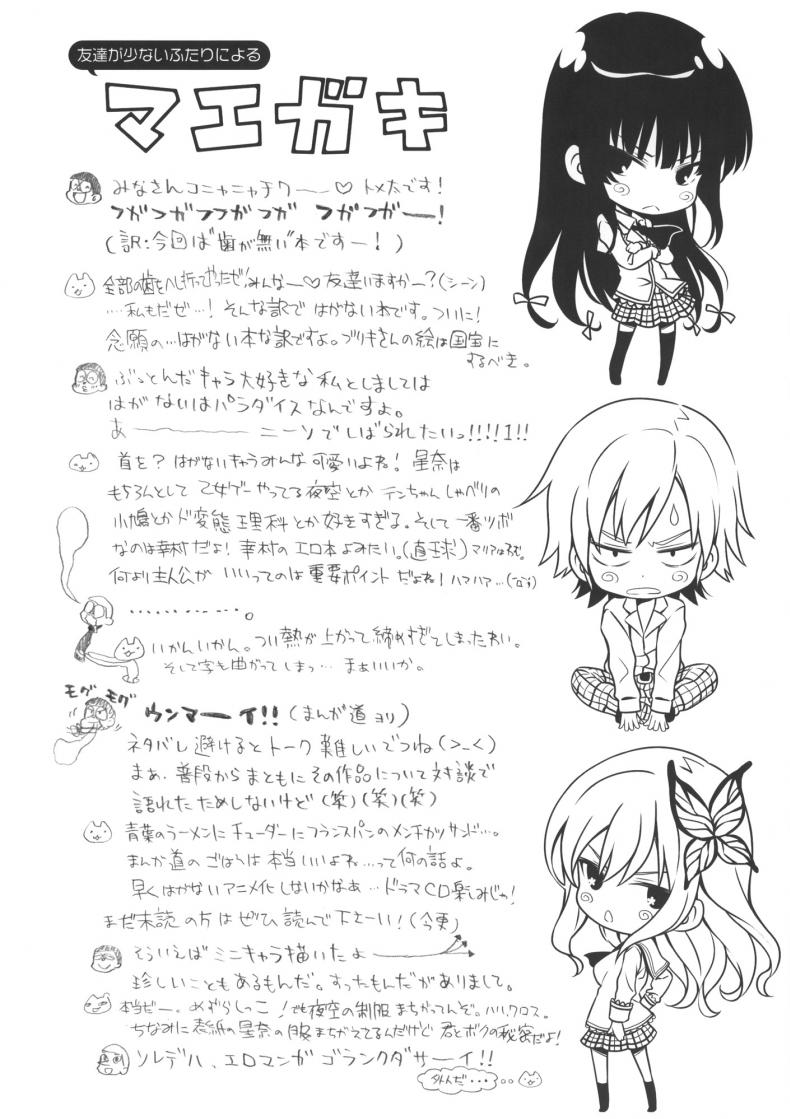 友達が少ないふたりによる
マエガキ
みなさんコニャニャチワー♡ トメ太です!
フガフガフフガフガ フガフガー!
(訳:今回ば歯が無い゙本ですー!)
全部の歯をへし折ってやったぜ!みんなー♡友達いますかー?(シーン)
……私もだぜ…!そんな訳で はがない本です。ついに!
念願の…はがない本な訳ですよ。ブリキさんの絵は国宝に
するべき。
ぶっとんだキャラ大好きな私としましては
はがないはパラダイスなんですよ。
あーーニーソでしばられたいっ!!!!1!!
首を? はがないキャラみんな可愛いよね! 星奈は
もちろんとして乙女ゲーやってる夜空とか テンちゃんしゃべりの
小鳩とかド変態理科とか好きすぎる。そして一番ツボ
なのは幸村だよ! 幸村のエロ本よみたい。(直球)
何より主人公がいいってのは重要ポイントだよね!ハァハァ…
…………。
いかんいかん。つい熱が上がって締めすぎてしまったわい。
そして字も曲がってしまっ… まぁいいか。
モグ モグ
ウンマーイ!!(まんが道ヨリ)
ネタバレ避けるとトーク難しいでつね(>_<)
まぁ、普段からまともにその作品について対談で
語れたためしないけど(笑)(笑)(笑)
青葉のラーメンにチューダーにフランスパンのメンチカツサンド…。
まんが道のごはんは本当いいよね…って何の話よ。
早くはがないアニメ化しないかなぁ…ドラマCD楽しみじゃ!
まだ未読の方はぜひ読んで下さーい!(今更)
そういえばミニキャラ描いたよ
珍しいこともあるもんだ。すったもんだがありまして。
本当ビー。めずらしっこ!でも夜空の制服まちがってんぞ。ハハ、クロス。
ちなみに表紙の星奈の服まちがえてるんだけど君とボクの秘密だよ!
ソレデハ、エロマンガゴランクダサーイ!!
外人だ・・・